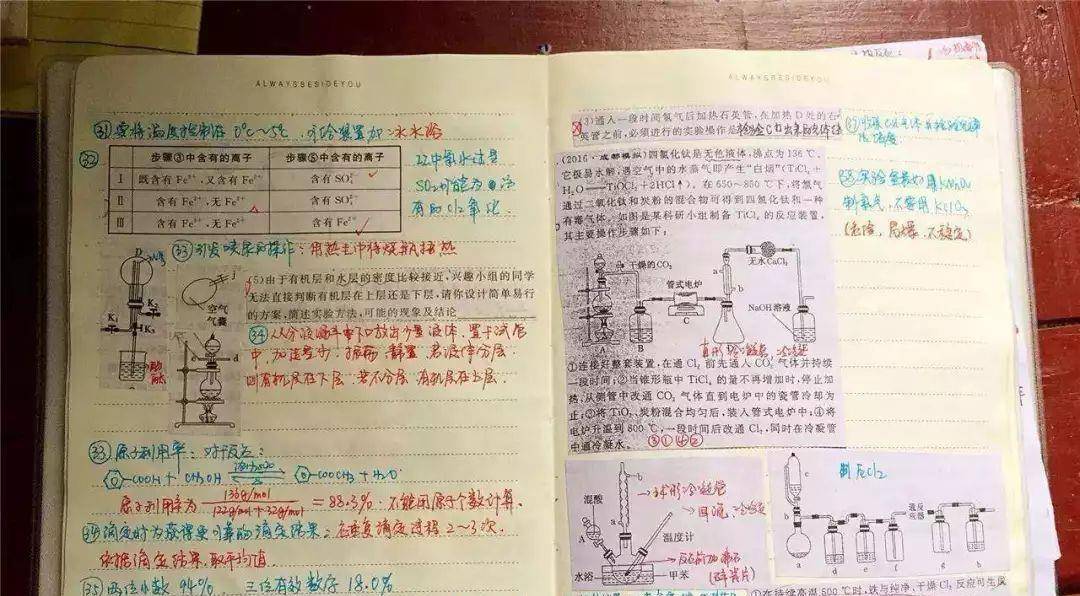 ALWAYSBESIDEYOU
㉛要将温度控制在0℃~5℃,
冰水浴
㉜
步骤③中含有的离子 步骤⑤中含有的离子
Ⅰ 既含有Fe³⁺,又含有Fe²⁺ 含有SO₄²⁻
Ⅱ 含有Fe³⁺,无Fe²⁺ 含有SO₄²⁻
Ⅲ 含有Fe²⁺,无Fe³⁺ 含有Fe²⁺
SO₂可能为
有的Cl₂氧化
㉝引发喷泉的操作:用热毛巾将烧瓶捂热
K₁
K₂
K₃
空气
气囊
c
d
(5)由于有机层和水层的密度比较接近,兴趣小组的同学
无法直接判断有机层在上层还是下层,请你设计简单易行
的方案,简述实验方法,可能的现象及结论
㉞从分液漏斗下口放出少量液体,置于试管
中,加适量水,振荡,静置,若液体分层,
则有机层在下层,若不分层,有机层在上层.
㉝原子利用率:对于反应:
-COOH + CH₃OH ⇌ -COOCH₃ + H₂O
原子利用率为 136g/mol / 122g/mol+32g/mol = 88.3% 不能用原子个数计算.
滴定时为获得更可靠的滴定结果:应重复滴定过程2~3次.
依据滴定结果,取平均值.
㉟两位小数 94% 三位有效数字 18.0%
ALWAYSBESIDEYOU
(3)通入一段时间氢气后加热石英管,在加热D处的石
英管之前,必须进行的实验操作是检验C
(2016·成都模拟)四氯化钛是无色液体,沸点为136℃,
它极易水解,遇空气中的水蒸气即产生“白烟”(TiCl₄+
H₂O═TiOCl₂+2HCl↑)。在650~850℃下,将氯气
通过二氧化钛和炭粉的混合物可得到四氯化钛和一种
有毒气体。如图是某科研小组制备TiCl₄的反应装置,
其主要操作步骤如下:
干燥的CO₂
管式电炉
无水CaCl₂
NaOH溶液
a
b
A
B
C
D
直形冷凝管
①连接好整套装置,在通Cl₂前先通入CO₂气体并持续
一段时间;②当锥形瓶中TiCl₄的量不再增加时,停止加
热,从侧管中改通CO₂气体直到电炉中的瓷管冷却为
止;③将TiO₂、炭粉混合均匀后,装入管式电炉中;④将
电炉升温到800℃,一段时间后改通Cl₂,同时在冷凝管
中通冷凝水。 ③①④②
制氧气,不要用KClO₃
混酸
A
a
水浴
甲苯
温度计
球形冷凝管
反应前加沸石
(碎瓷片)
制Cl₂
a
b
c
d
e
f
g
h
①在持续高温500℃时,铁与纯净、干燥Cl₂反应可生成